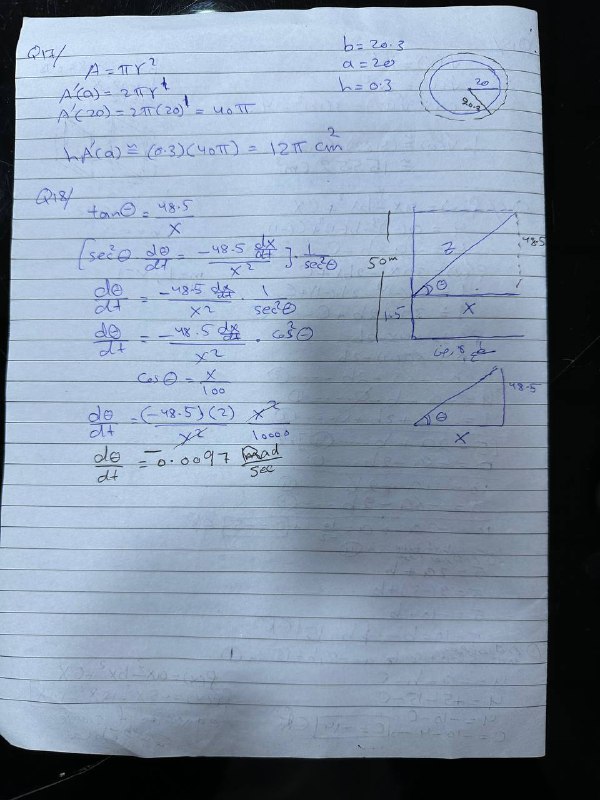 Q17/
A = πr²
A'(a) = 2πr¹
A'(20) = 2π(20)¹ = 40π
hA'(a) ≅ (0.3)(40π) = 12π cm²
b = 20.3
a = 20
h = 0.3
20
20.3
Q18/
tanθ = 48.5/x
[sec²θ dθ/dt = -48.5 dx/dt / x²] · 1/sec²θ
dθ/dt = -48.5 dx/dt / x² · 1/sec²θ
dθ/dt = -48.5 dx/dt / x² · cos²θ
cosθ = x/100
dθ/dt = (-48.5)(2)/x² · x²/10000
dθ/dt = -0.0097 rad/sec
50m
1.5
Z
48.5
θ
x
48.5
θ
x